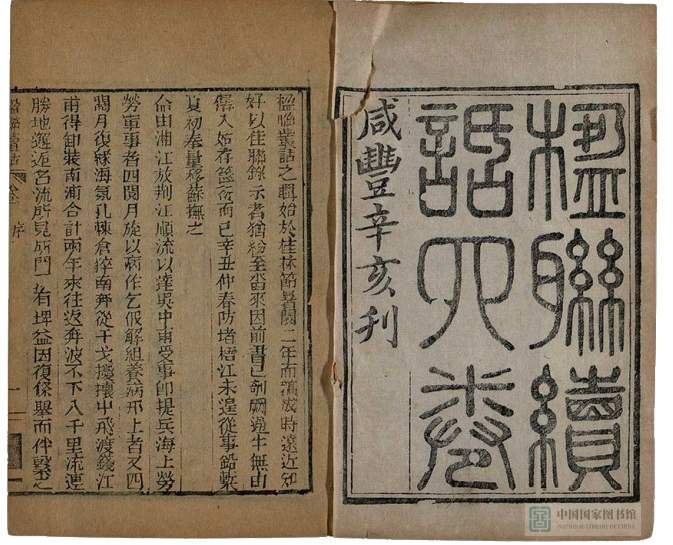 楹聯續
話四卷
咸豐辛亥刊
楹聯叢話之輯始於桂林節署閱二年而蕆成時遠近知
好以佳聯錄示者猶紛至沓來因前書已剞劂過半無由
儳入姑存篋衍而已辛丑仲春防堵梧江未遑從事鉛槧
夏初奉量移蘇撫之
命由湘江放荊江順流以達吳中甫受事即提兵海上勞
勞軍事者四閱月旋以病作乞假解組養疴邗上者又四
閱月復緣海氛孔棘倉猝南奔從干戈擾攘中飛渡錢江
甫得卸裝南浦合計兩年來往返奔波不下八千里流連
勝地邂逅名流所見所聞 有埤益因復條舉而件繫之
楹聯續話 卷一 序 一
中国国家图书馆
NATIONAL LIBRARY OF CHINA